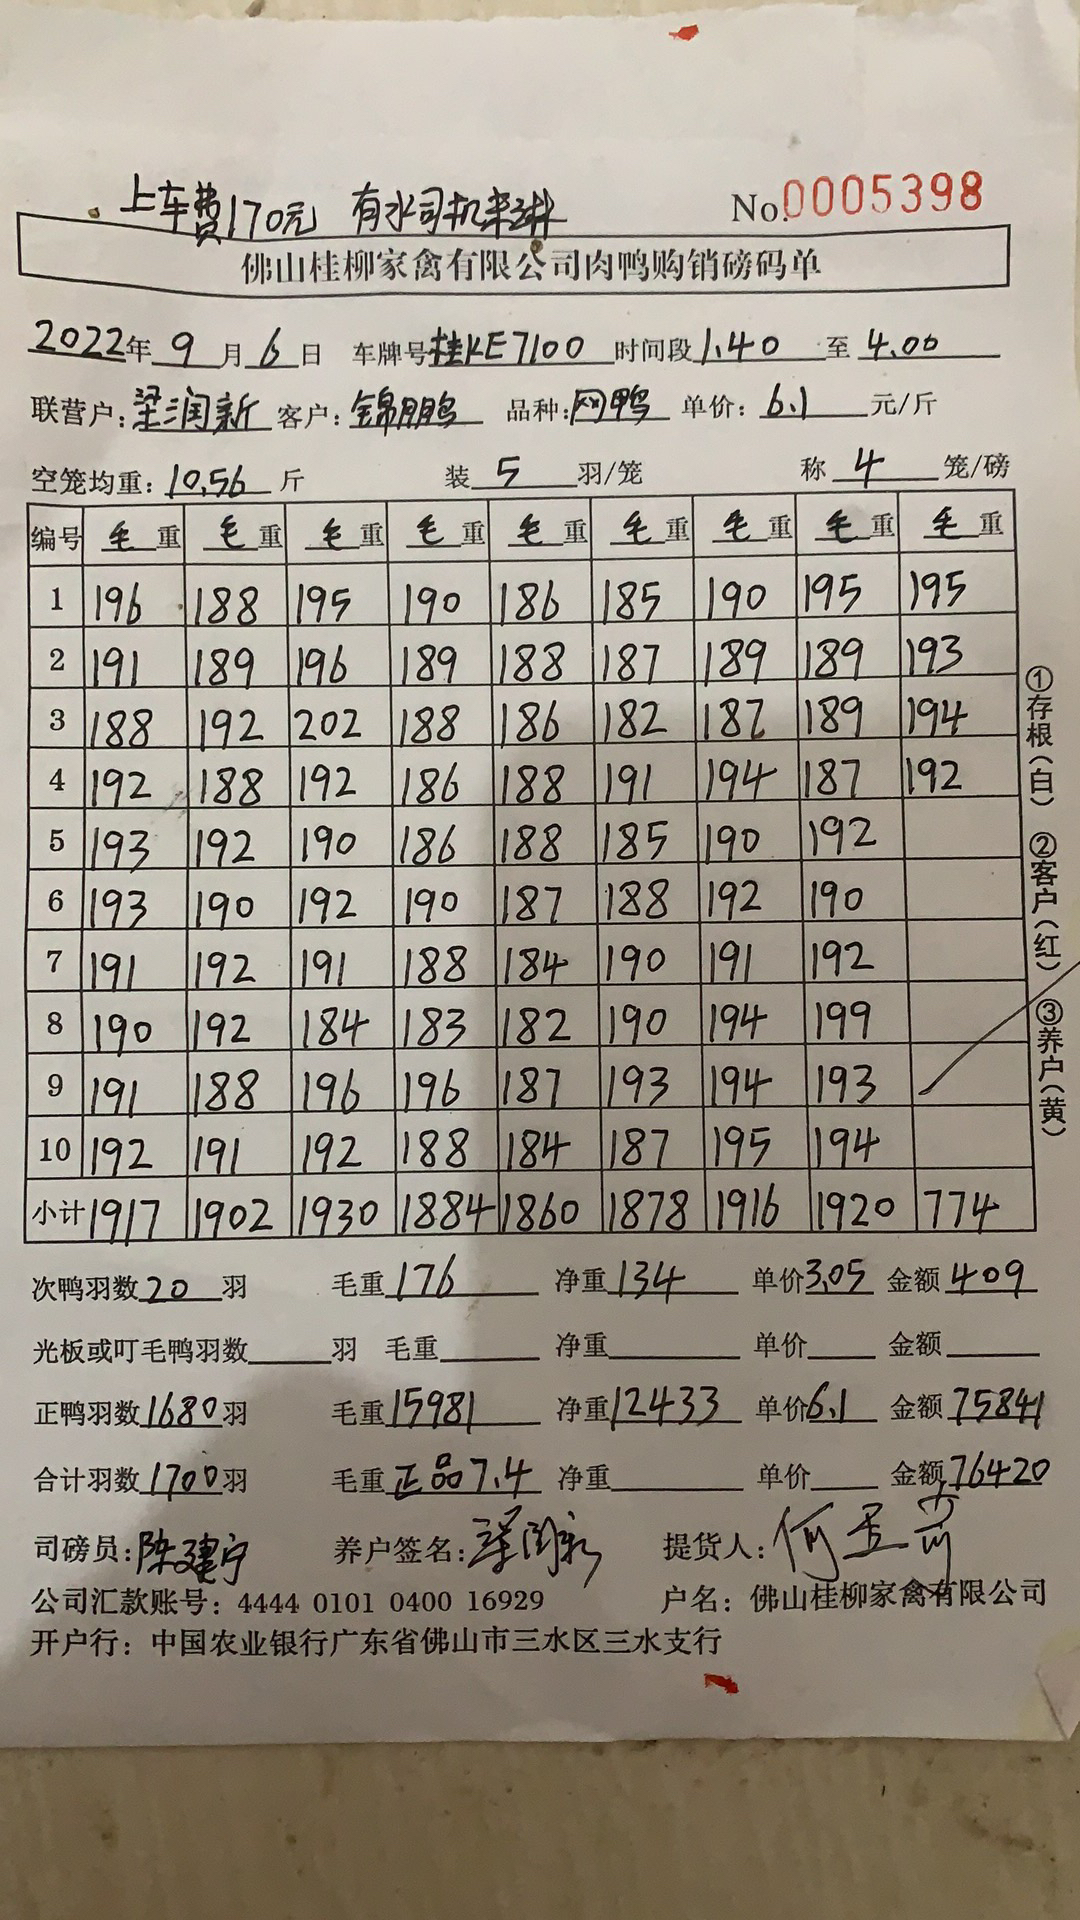 上车费170元 有水司机来淋
No.0005398
佛山桂柳家禽有限公司肉鸭购销磅码单
2022年9月6日 车牌号桂KE7100 时间段1.40至4.00
联营户:梁润新 客户:锦鹏 品种:网鸭 单价:6.1元/斤
空笼均重:10.56斤 装5羽/笼 称4笼/磅
编号 毛重 毛重 毛重 毛重 毛重 毛重 毛重 毛重 毛重
1 196 188 195 190 186 185 190 195 195
2 191 189 196 189 188 187 189 189 193
3 188 192 202 188 186 182 187 189 194
4 192 188 192 186 188 191 194 187 192
5 193 192 190 186 188 185 190 192
6 193 190 192 190 187 188 192 190
7 191 192 191 188 184 190 191 192
8 190 192 184 183 182 190 194 199
9 191 188 196 196 187 193 194 193
10 192 191 192 188 184 187 195 194
小计 1917 1902 1930 1884 1860 1878 1916 1920 774
①存根(白) ②客户(红) ③养户(黄)
次鸭羽数20羽 毛重176 净重134 单价3.05 金额409
光板或叮毛鸭羽数 羽 毛重 净重 单价 金额
正鸭羽数1680羽 毛重15981 净重12433 单价6.1 金额75841
合计羽数1700羽 毛重正品7.4 净重 单价 金额76420
司磅员:陈建宁 养户签名:梁润新 提货人:何
公司汇款账号: 4444 0101 0400 16929 户名: 佛山桂柳家禽有限公司
开户行: 中国农业银行广东省佛山市三水区三水支行